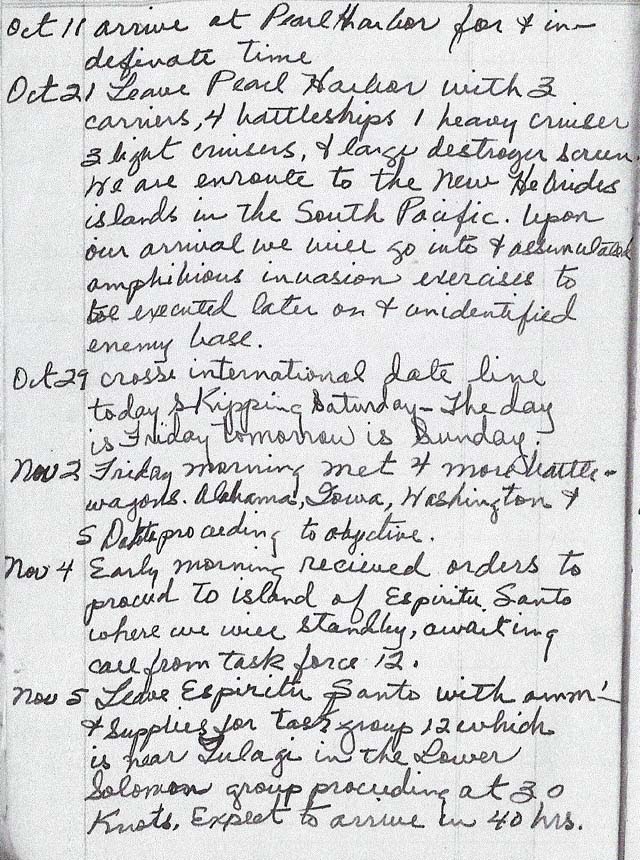 Oct 11 arrive at Pearl Harbor for & in-
definate time
Oct 21 Leave Pearl Harbor with 3
carriers, 4 battleships 1 heavy cruiser
3 light cruisers, & large destroyer screen.
We are enroute to the New Hebrides
islands in the South Pacific. Upon
our arrival we will go into &
amphibious invasion exercises to
be executed later on & unidentified
enemy base.
Oct 29 crosse international date line
today skipping Saturday - The day
is Friday tomorrow is Sunday.
Nov 2 Friday morning met 4 more battle-
wagons. Alabama, Iowa, Washington &
S proceding to objective.
Nov 4 Early morning recieved orders to
procied to island of Espiritu Santo
where we will standby, awaiting
call from task force 12.
Nov 5 Leave Espiritu Santo with amm'
& supplies for task group 12 which
is near Tulagi in the Lower
Solomon group proceeding at 30
Knots. Expect to arrive in 40 hrs.